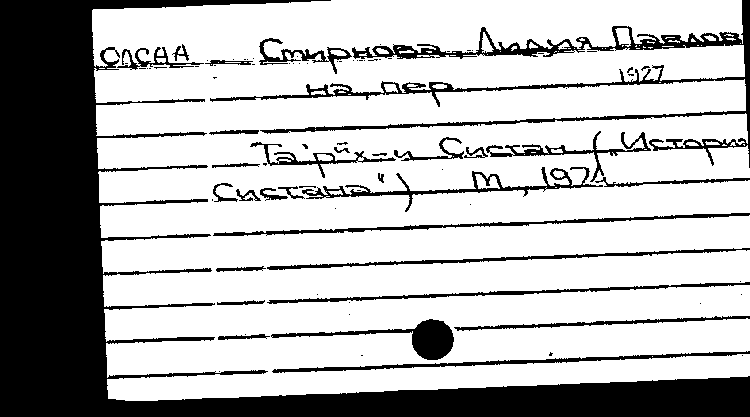 ОЛСАА Смирнова, Лидия Павлов
на, пер. 1927
Та'рӣх-и Систан („История
Систана") М., 1974